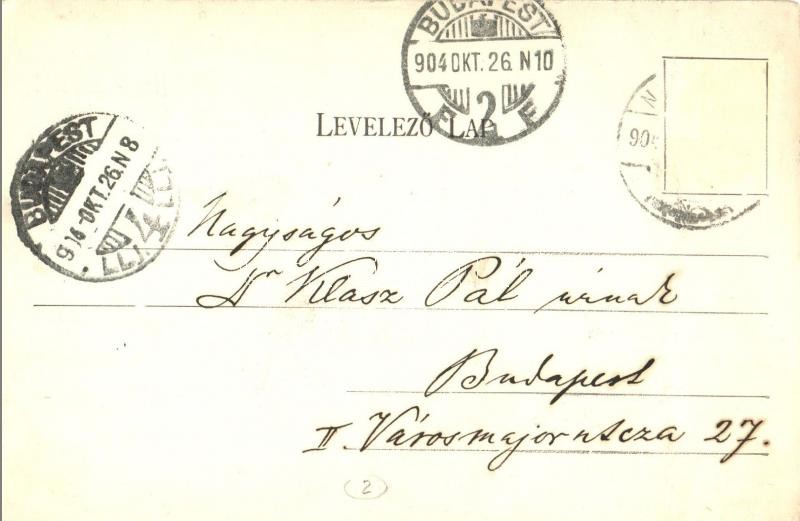 BUDAPEST
904 OKT. 26. N10
2
F F
LEVELEZŐ LAP
BUDAPEST
904 OKT. 26. N 8
4
N
905
Nagyságos
Dr Klasz Pál úrnak
Budapest
II. Városmajor utcza 27.
2